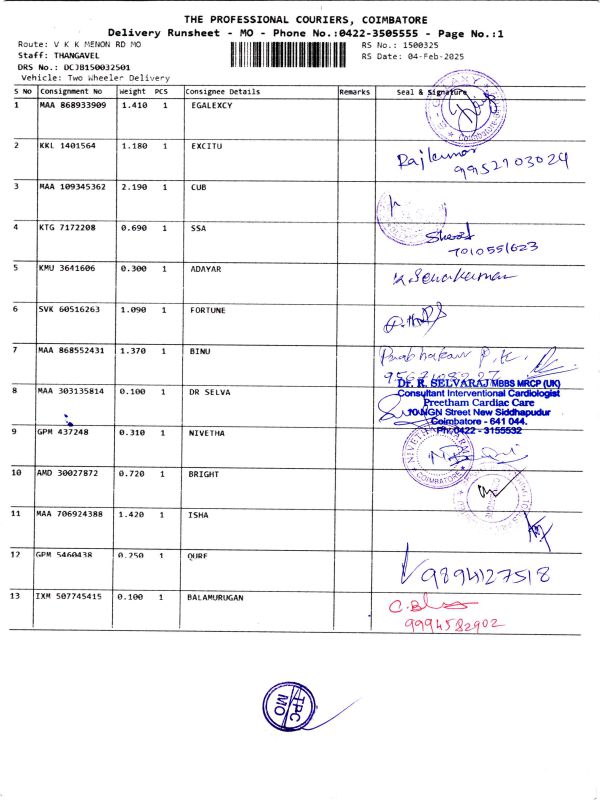 THE PROFESSIONAL COURIERS, COIMBATORE
Delivery Runsheet - MO - Phone No.:0422-3505555 - Page No.:1
Route: V K K MENON RD MO
RS No.: 1500325
Staff: THANGAVEL
RS Date: 04-Feb-2025
DRS No.: DCJB150032501
Vehicle: Two Wheeler Delivery
S NO Consignment No Weight PCS Consignee Details Remarks Seal & Signature
1 MAA 868933909 1.410 1 EGALEXCY
2 KKL 1401564 1.180 1 EXCITU
Rajkumar
9952703024
3 MAA 109345362 2.190 1 CUB
4 KTG 7172208 0.690 1 SSA
7010551623
5 KMU 3641606 0.300 1 ADAYAR
6 SVK 60516263 1.090 1 FORTUNE
7 MAA 868552431 1.370 1 BINU
Prabhakar P.K.
8 MAA 303135814 0.100 1 DR SELVA
Dr. R. SELVARAJ MBBS MRCP (UK)
Consultant Interventional Cardiologist
Preetham Cardiac Care
10 NGN Street New Siddhapudur
Coimbatore - 641 044.
Ph: 0422 - 3155532
9 GPM 437248 0.310 1 NIVETHA
COIMBATORE
10 AMD 30027872 0.720 1 BRIGHT
11 MAA 706924388 1.420 1 ISHA
12 GPM 5460438 0.250 1 QURE
9894127518
13 IXM 507745415 0.100 1 BALAMURUGAN
9994582902
TPC
MO